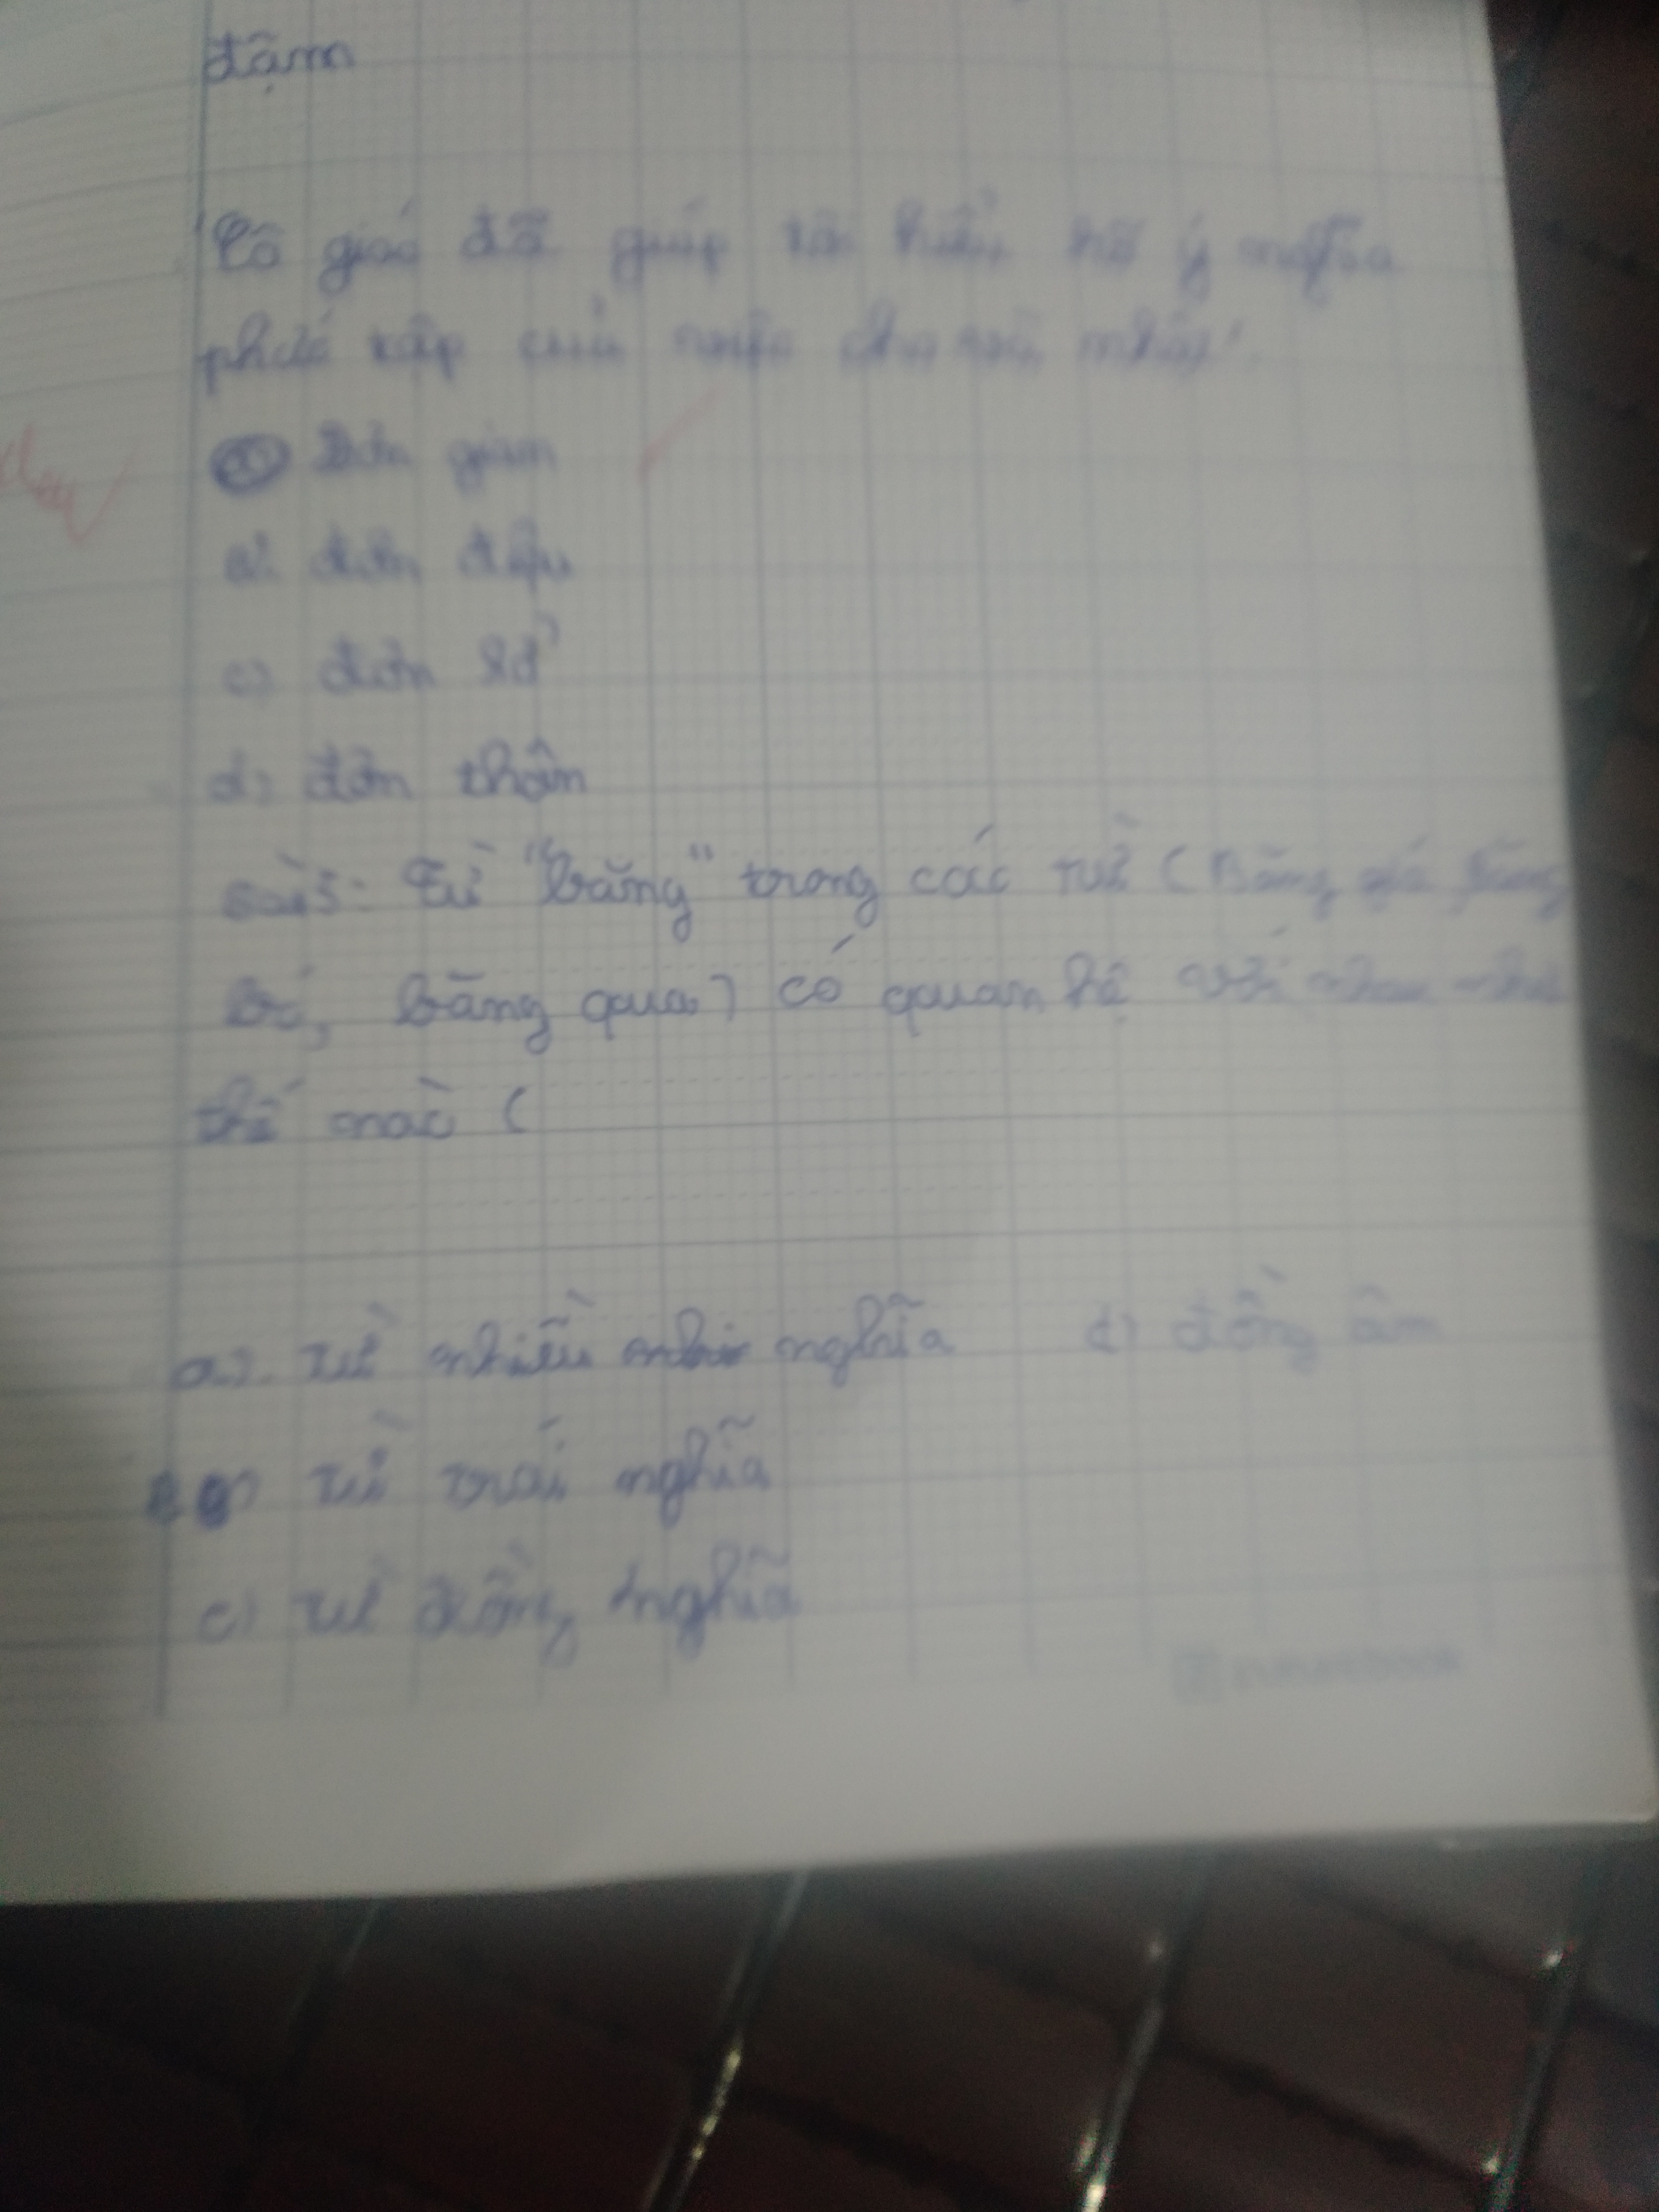 đậm
"Cô giáo đã giúp tôi hiểu rõ ý nghĩa
phức tạp của
đơn giản
đơn điệu
c) đơn sơ
d) đơn thân
câu 5: Từ "băng" trong các từ (Băng giá, băng
bó, băng qua) có quan hệ với nhau như
thế nào (
a). từ nhiều nghĩa d) đồng âm
từ trái nghĩa
c) từ đồng nghĩa